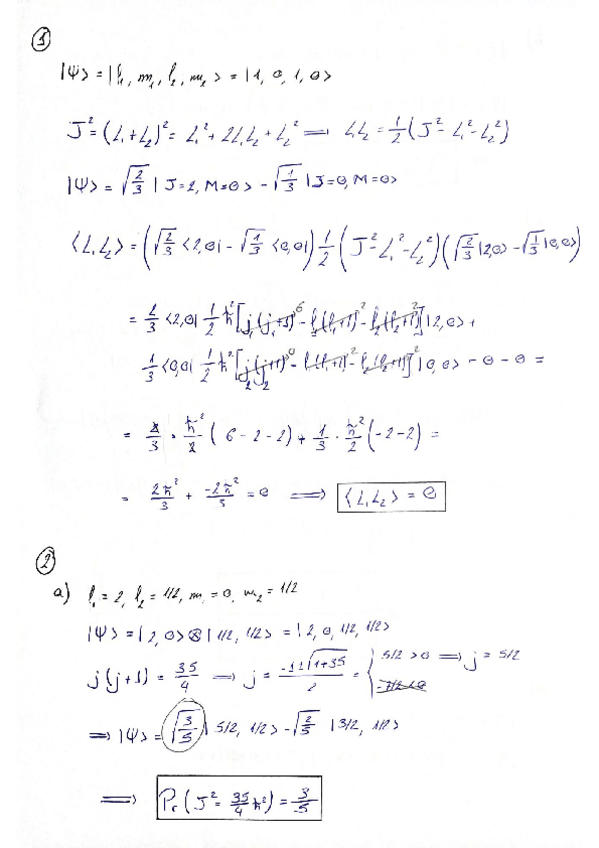 1
|Ψ> = |l₁, m₁, l₂, m₂> = |1, 0, 1, 0>
J² = (L₁+L₂)² = L₁² + 2L₁L₂ + L₂² ⟹ L₁L₂ = 1/2 (J² - L₁² - L₂²)
|Ψ> = √(2/3) |J=2, M=0> - √(1/3) |J=0, M=0>
⟨L₁L₂⟩ = (√(2/3) <2,0| - √(1/3) <0,0|) 1/2 (J² - L₁² - L₂²) (√(2/3) |2,0> - √(1/3) |0,0>)
= 2/3 <2,0| 1/2 ħ² [j₁(j₁+1)⁶ - l₁(l₁+1)² - l₂(l₂+1)²] |2,0> +
1/3 <0,0| 1/2 ħ² [j₂(j₂+1)⁰ - l₁(l₁+1)² - l₂(l₂+1)²] |0,0> - 0 - 0 =
= 2/3 · ħ²/2 (6-2-2) + 1/3 · ħ²/2 (-2-2) =
= 2ħ²/3 + -2ħ²/3 = 0 ⟹ ⟨L₁L₂⟩ = 0
2
a) l₁ = 2, l₂ = 1/2, m₁ = 0, m₂ = 1/2
|Ψ> = |2, 0> ⊗ |1/2, 1/2> = |2, 0, 1/2, 1/2>
j(j+1) = 35/4 ⟹ j = (-1±√(1+35))/2 = { 5/2 > 0 ⟹ j = 5/2
-7/2 < 0
⟹ |Ψ> = √(3/5) |5/2, 1/2> - √(2/5) |3/2, 1/2>
⟹ Pr (J² = 35/4 ħ²) = 3/5